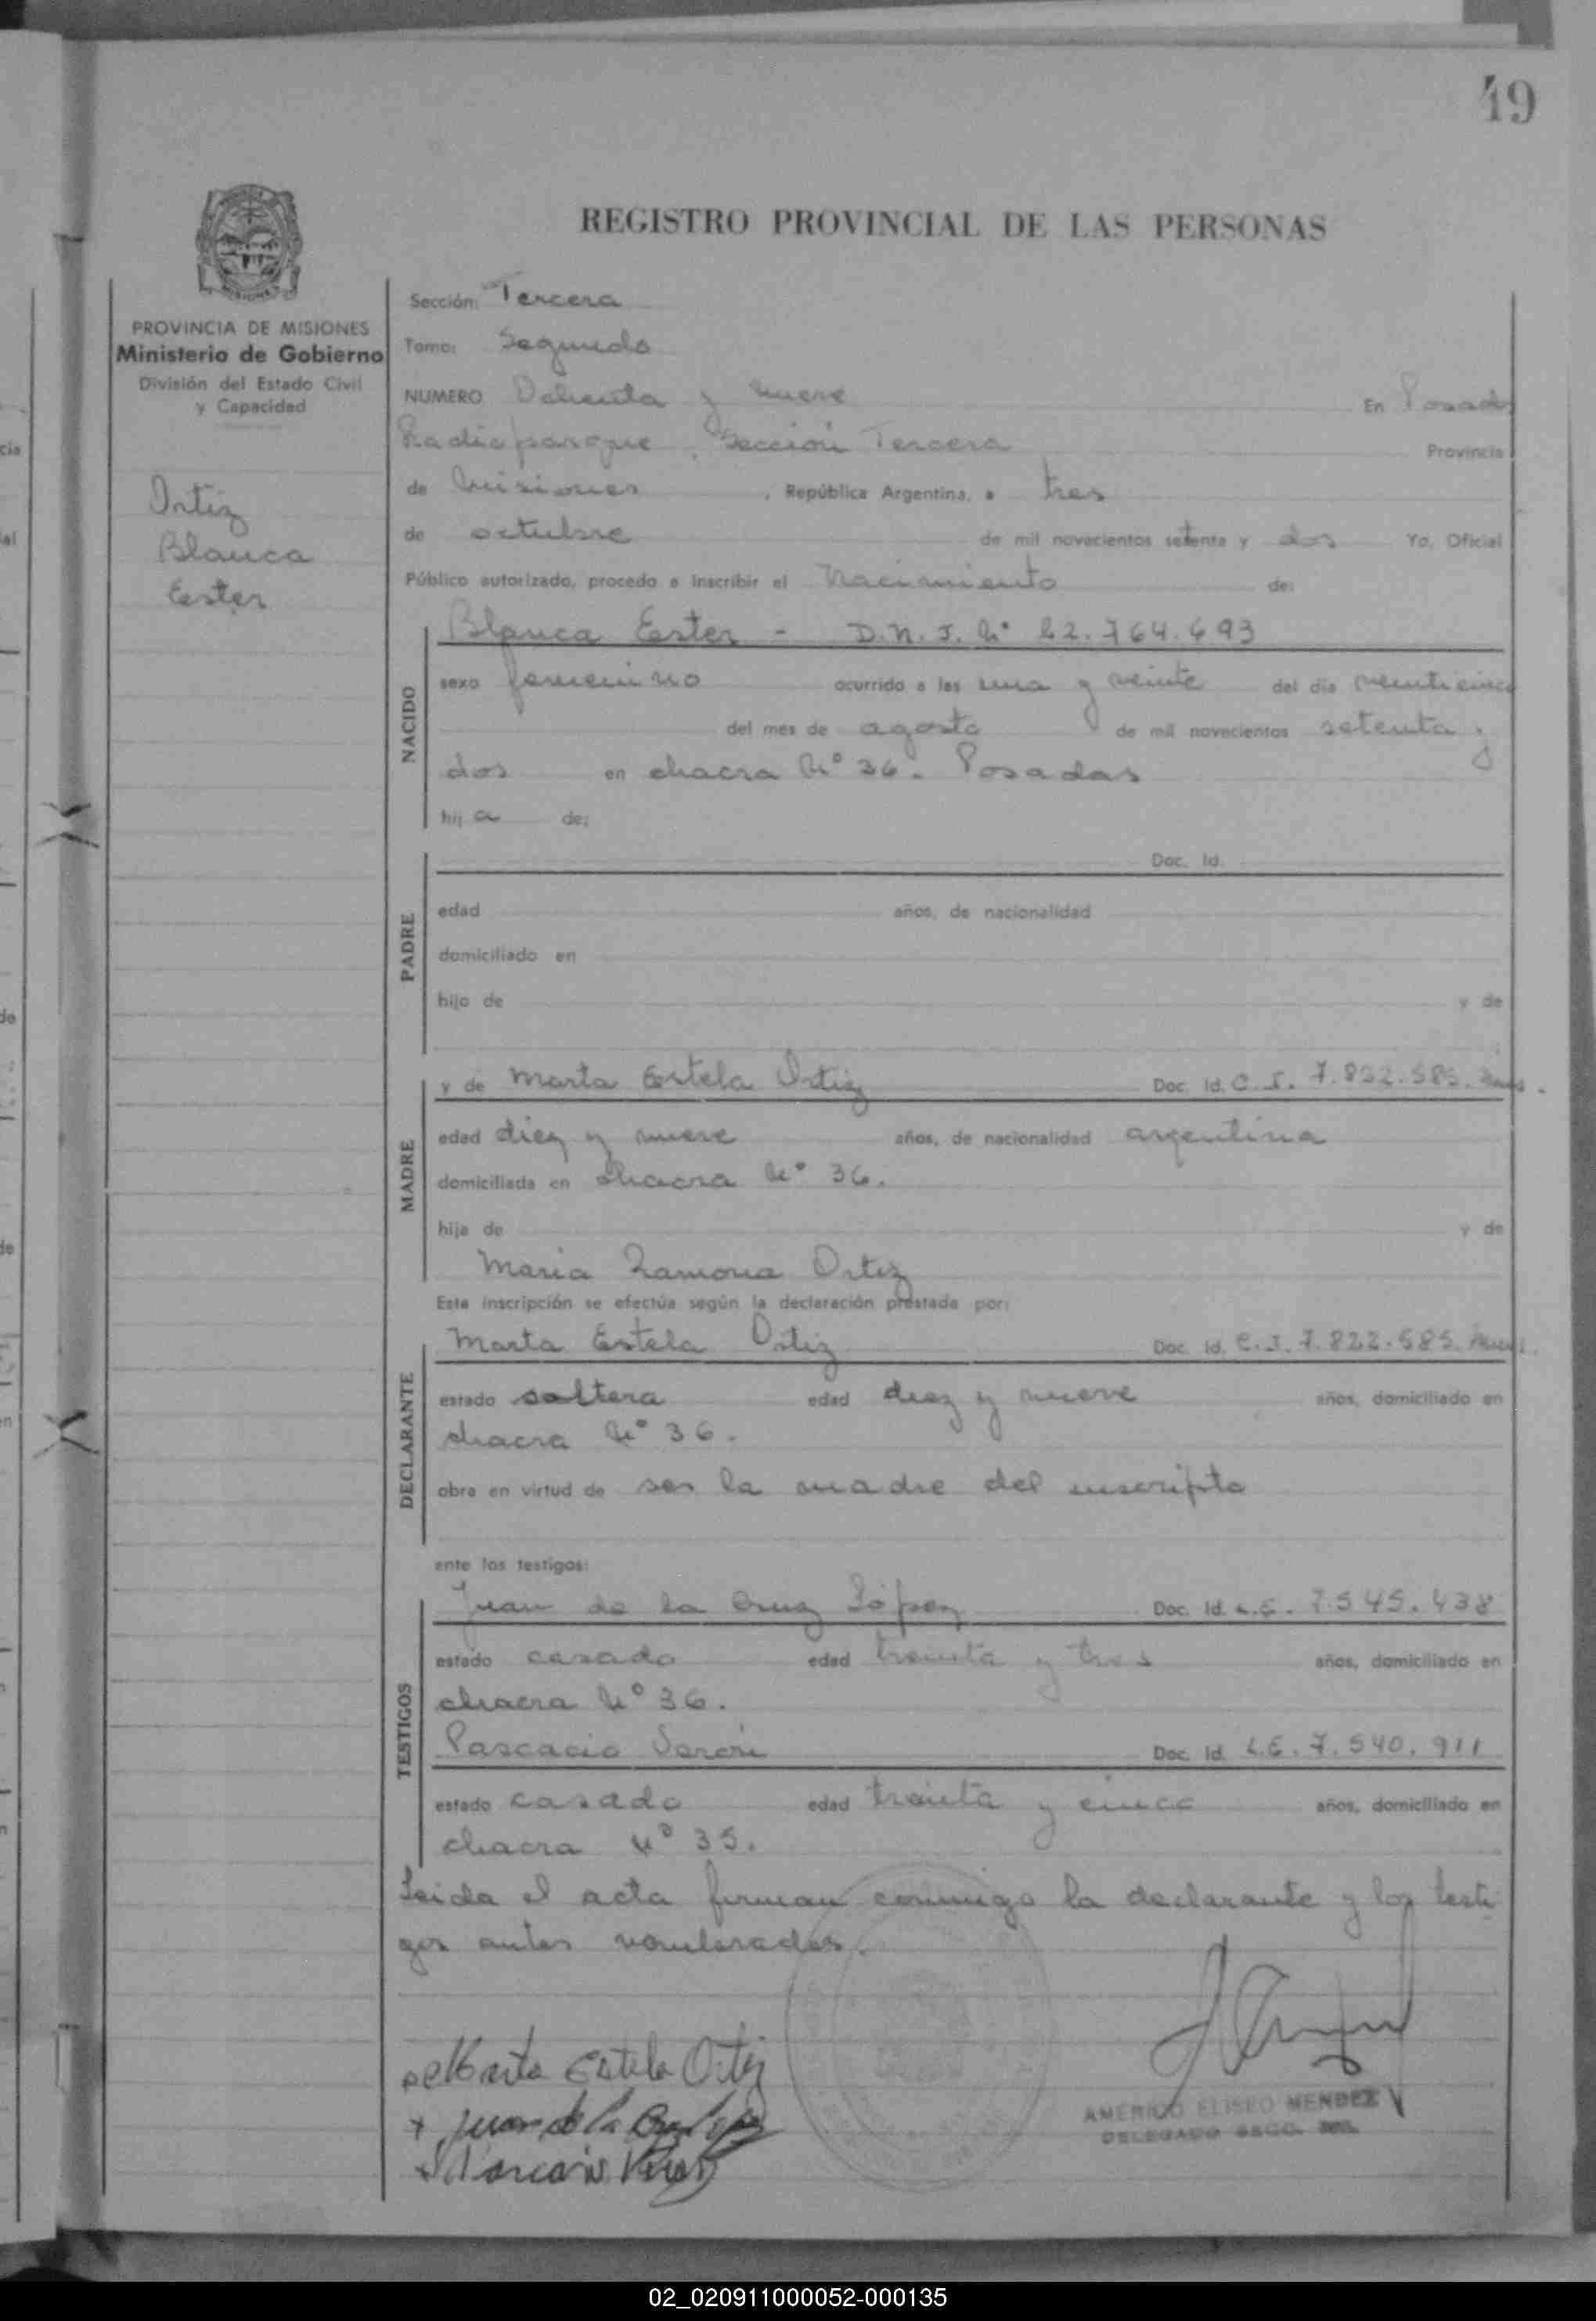 49
REGISTRO PROVINCIAL DE LAS PERSONAS
PROVINCIA DE MISIONES
Ministerio de Gobierno
División del Estado Civil
y Capacidad
Ortiz
Blanca
Ester
Sección: Tercera
Tomo: Segundo
NUMERO Ochenta y nueve En Posadas
Radioparque, Sección Tercera Provincia
de Misiones, República Argentina, a tres
de octubre de mil novecientos setenta y dos Yo, Oficial
Público autorizado, procedo a inscribir el Nacimiento de:
NACIDO
Blanca Ester - D.N.I. Nº 22.764.693
sexo femenino ocurrido a las una y veinte del día veinticinco
del mes de agosto de mil novecientos setenta y
dos en chacra Nº 36. Posadas
hija de:
PADRE
Doc. Id.
edad años, de nacionalidad
domiciliado en
hijo de y de
MADRE
y de Marta Estela Ortiz Doc. Id. C.I. 7.822.585.
edad diez y nueve años, de nacionalidad argentina
domiciliada en chacra Nº 36.
hija de y de
Maria Ramona Ortiz
Esta inscripción se efectúa según la declaración prestada por:
DECLARANTE
Marta Estela Ortiz Doc. Id. C.I. 7.822.585.
estado soltera edad diez y nueve años, domiciliado en
chacra Nº 36.
obra en virtud de ser la madre del inscripto
ante los testigos:
TESTIGOS
Juan de la Cruz López Doc. Id. L.E. 7.545.438
estado casado edad treinta y tres años, domiciliado en
chacra Nº 36.
Pascacio Doc. Id. L.E. 7.540.911
estado casado edad treinta y cinco años, domiciliado en
chacra Nº 35.
Leida el acta firman conmigo la declarante y los testi
gos antes nombrados.
Marta Estela Ortiz
Juan de la Cruz Lopez
AMERICO ELISEO MENDEZ
DELEGADO SECC.
02_020911000052-000135